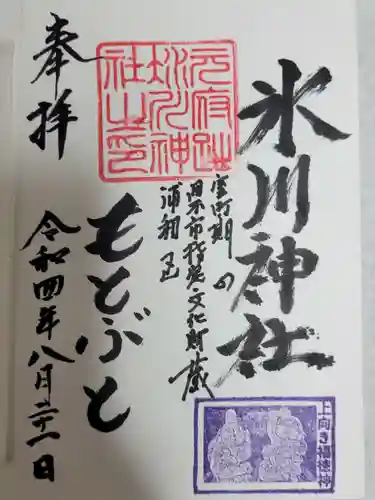 氷川神社
室町期の
日本市指定文化財蔵
浦和
もとぶと
元府趾
氷川神
社之印
奉拝
令和四年八月二十一日
上向き福徳神